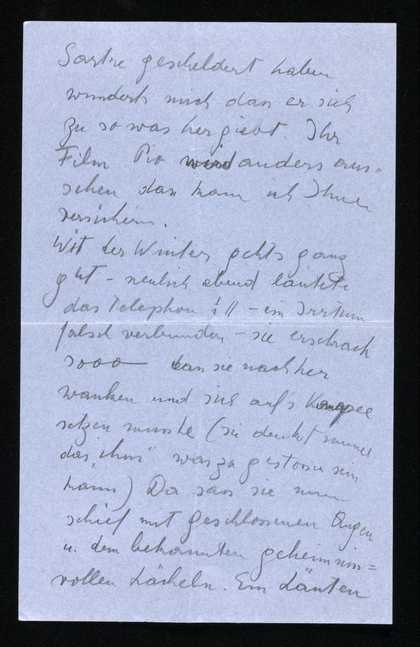 Sartre gescheldert haben
wunderts mich dass er sich
zu so was hergiebt. Ihr
Film Pio wird anders aus-
sehen das kann ich Ihnen
versichern.
Mit der Winter gehts ganz
gut – neulich abend läutete
das Telephon !! – ein Irrtum
falsch verbunden – sie erschrack
sooo – dass sie nachher
wanken und sich aufs Kanapee
setzen musste (sie denkt immer
dass "ihm" was zugestossen sein
kann) Da sass sie nun
schief mit geschlossenen Augen
u. dem bekannten geheimniss=
vollen Lächeln. Ein Läuten